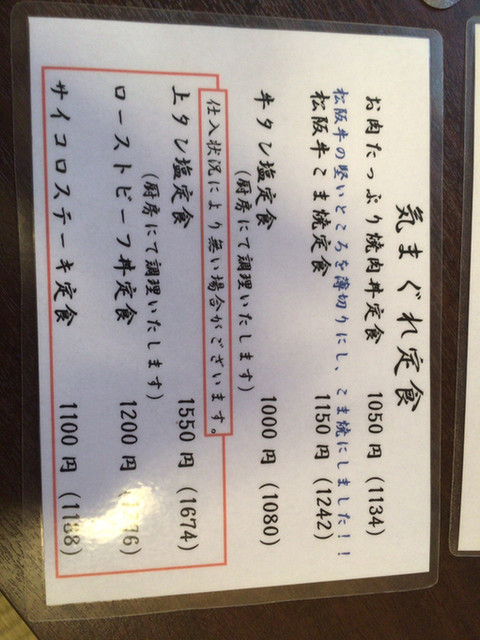 気まぐれ定食
お肉たっぷり焼肉丼定食 1050円 (1134)
松阪牛の堅いところを薄切りにし、こま焼にしました!!
松阪牛こま焼定食 1150円 (1242)
牛タン塩定食 1000円 (1080)
(厨房にて調理いたします)
仕入状況により無い場合がございます。
上タン塩定食 1550円 (1674)
(厨房にて調理いたします)
ローストビーフ丼定食 1200円
サイコロステーキ定食 1100円 (1188)